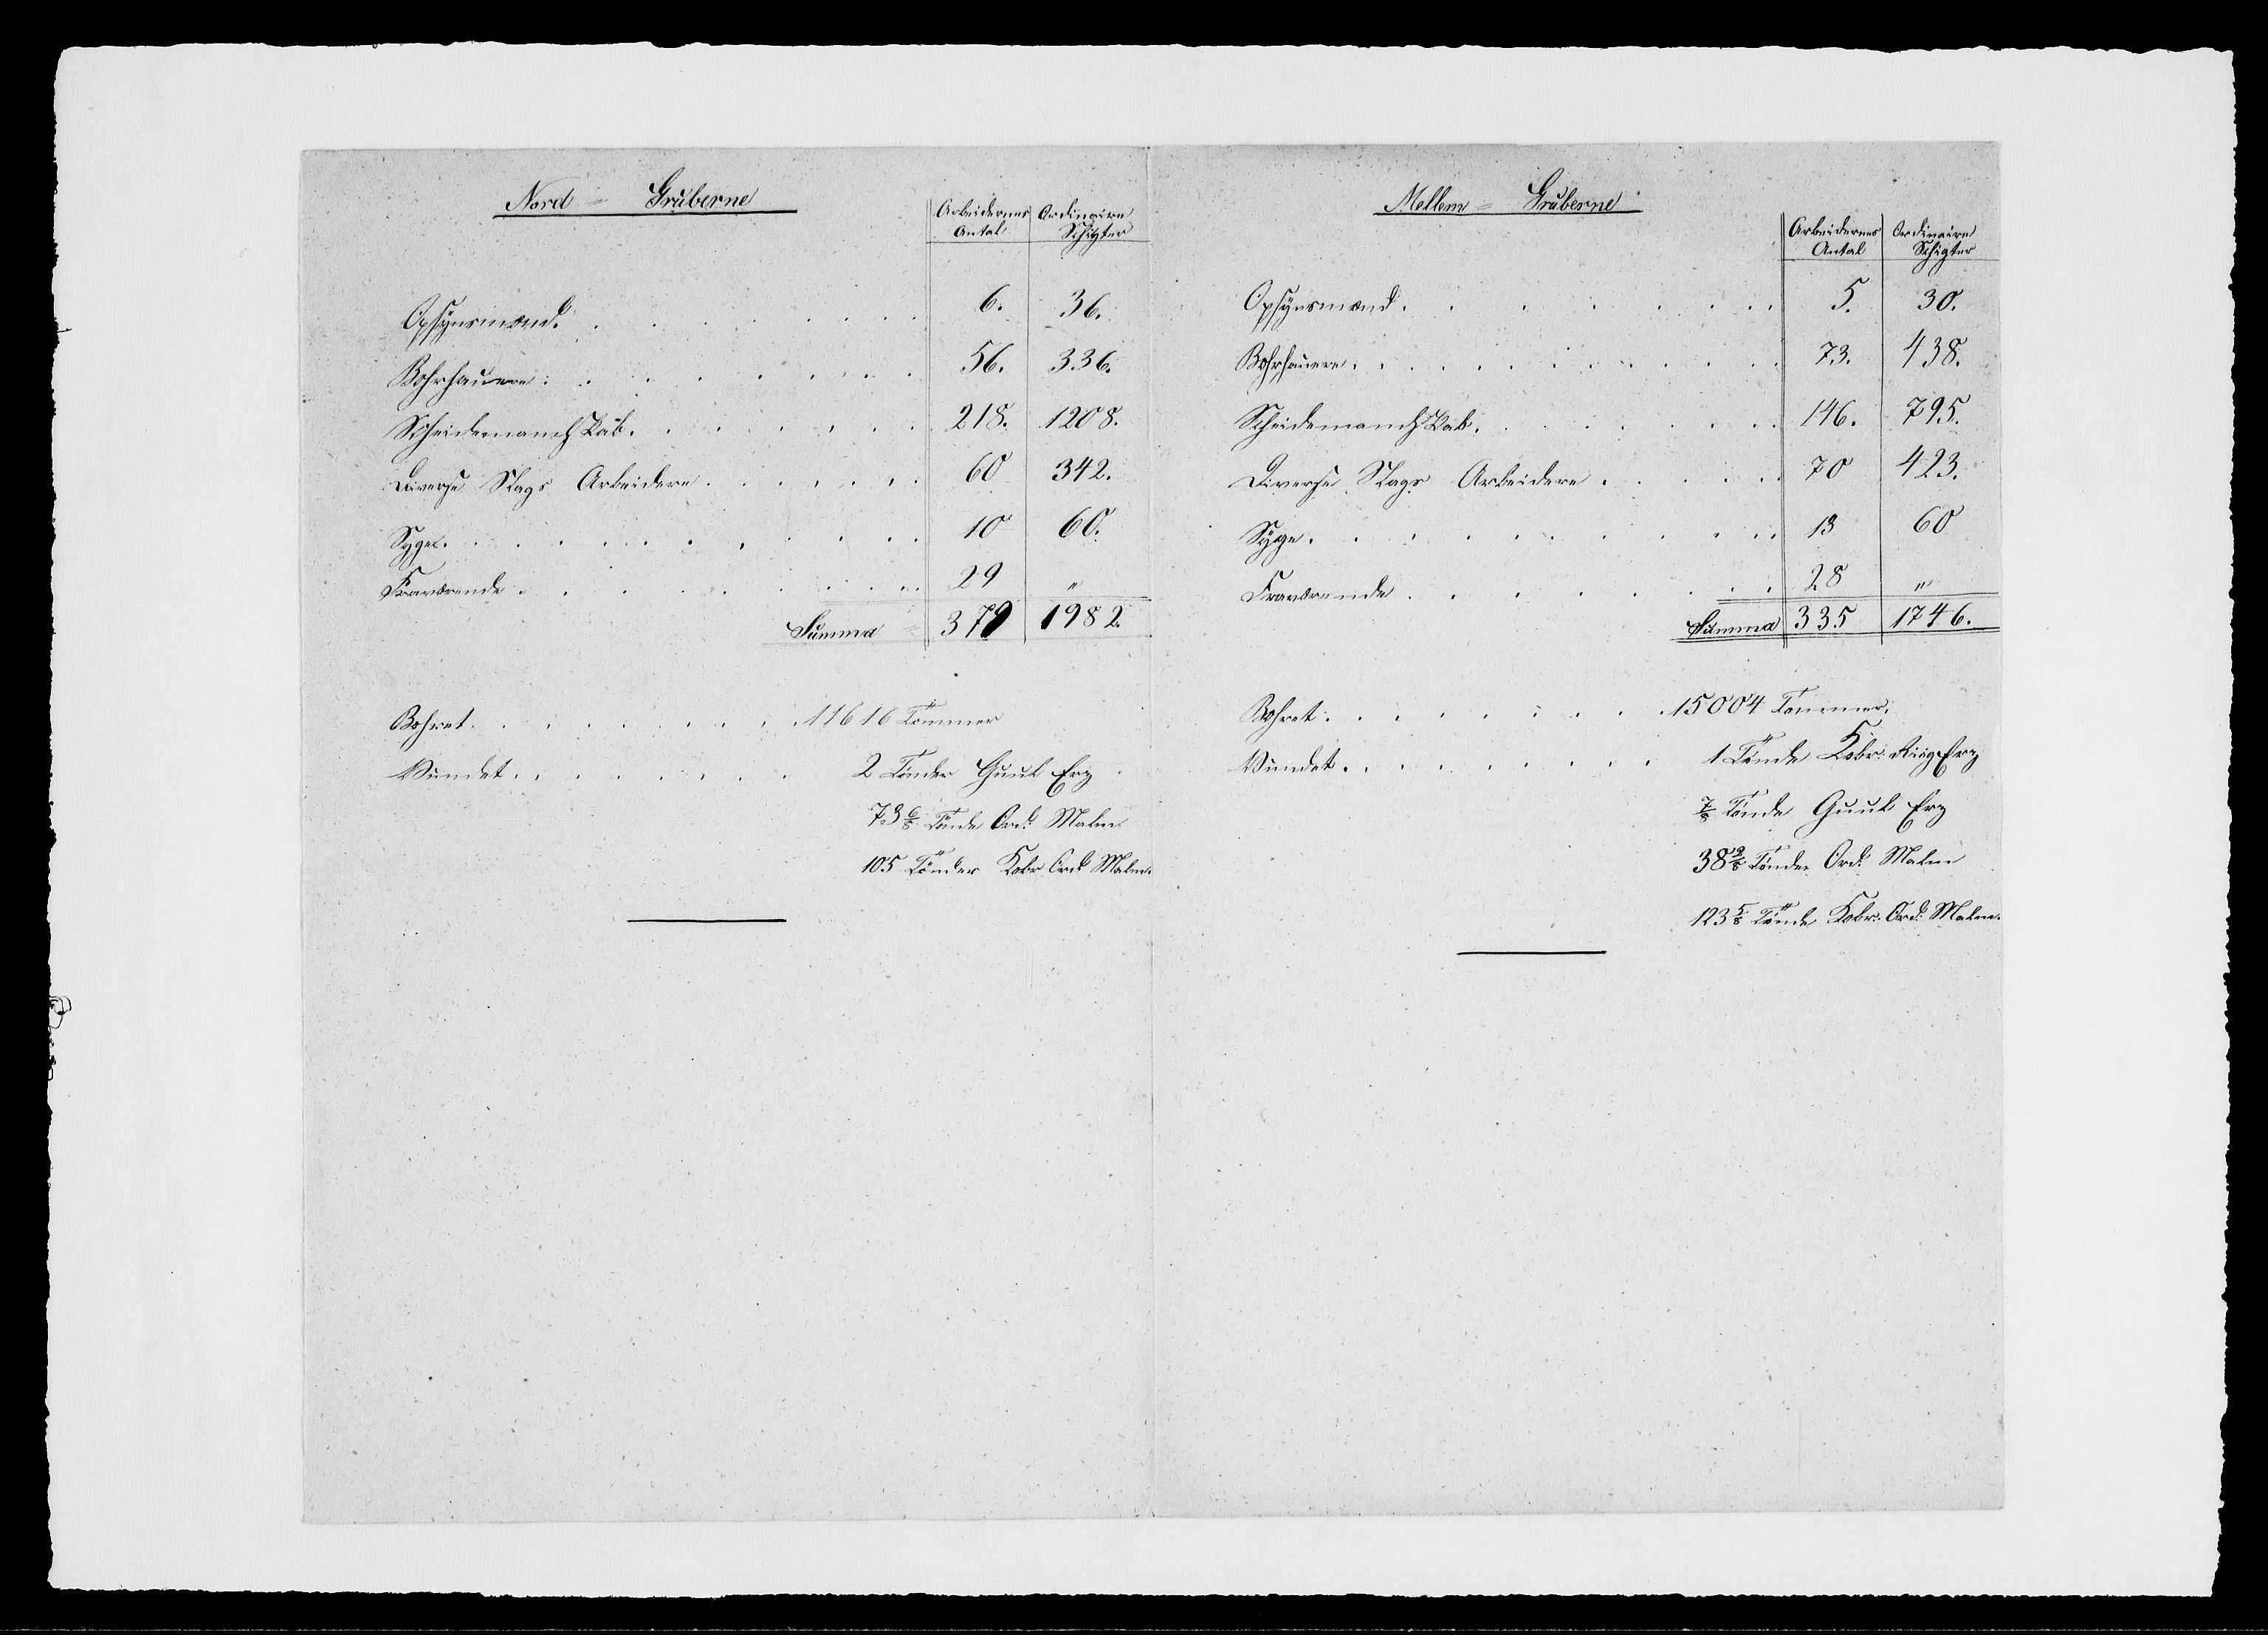 Nord = Gruberne
Arbeidernes Antal | Ordinaire Schigter
Opsynsmænd. 6. 36.
Bohrhauere. 56. 336.
Scheidemandskab. 218. 1208.
Diverse Slags Arbeidere. 60 342.
Syge. 10 60.
Fraværende. 29 "
Summa 379 1982.
Bohret. 11616 Tommer
Vundet. 2 Tönder Guul Erz
73 6/8 Tönde Ord: Malm
105 Tönder Kobr Ord: Malm.
Mellem = Gruberne
Arbeidernes Antal | Ordinaire Schigter
Opsynsmænd. 5. 30.
Bohrhauere. 73. 438.
Scheidemandskab. 146. 795.
Diverse Slags Arbeidere. 70 423.
Syge. 13 60
Fraværende. 28 "
Summa 335 1746.
Bohret. 15004 Tommer.
Vundet. 1 Tönde Kobr: Riig Erz
7/8 Tönde Guul Erz
38 Tönder Ord: Malm
123 5/8 Tönde Kobr: Ord: Malm.